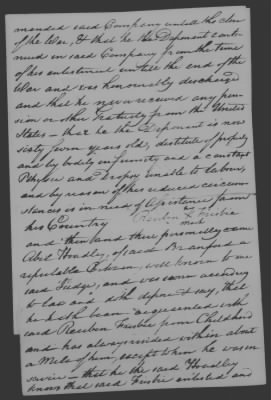 manded said Company untill the close
of the War, & that he the Deponent conti-
nued in said Company from the time
of his enlistment untill the end of the
War and was honourably discharged
and that he never received any pen-
sion or other Gratuity from the United
States – that he the Deponent is now
sixty years old, destitute of property
and by bodily infirmity and a constant
Phthisic and unable to labour,
and by reason of his reduced circum-
stances is in need of Assistance from
his Country
Reuben Frisbie
mark
and then and there personally came
Abel Hoadley, of said Branford a
reputable Citizen, well known to me
said Judge, and was sworn according
to law and doth depose & say, that
he hath been acquainted with
said Reuben Frisbie from Childhood
and has always resided within about
a Mile of him, except when he was in
service – that he the said Hoadley
knows that said Frisbie enlisted and